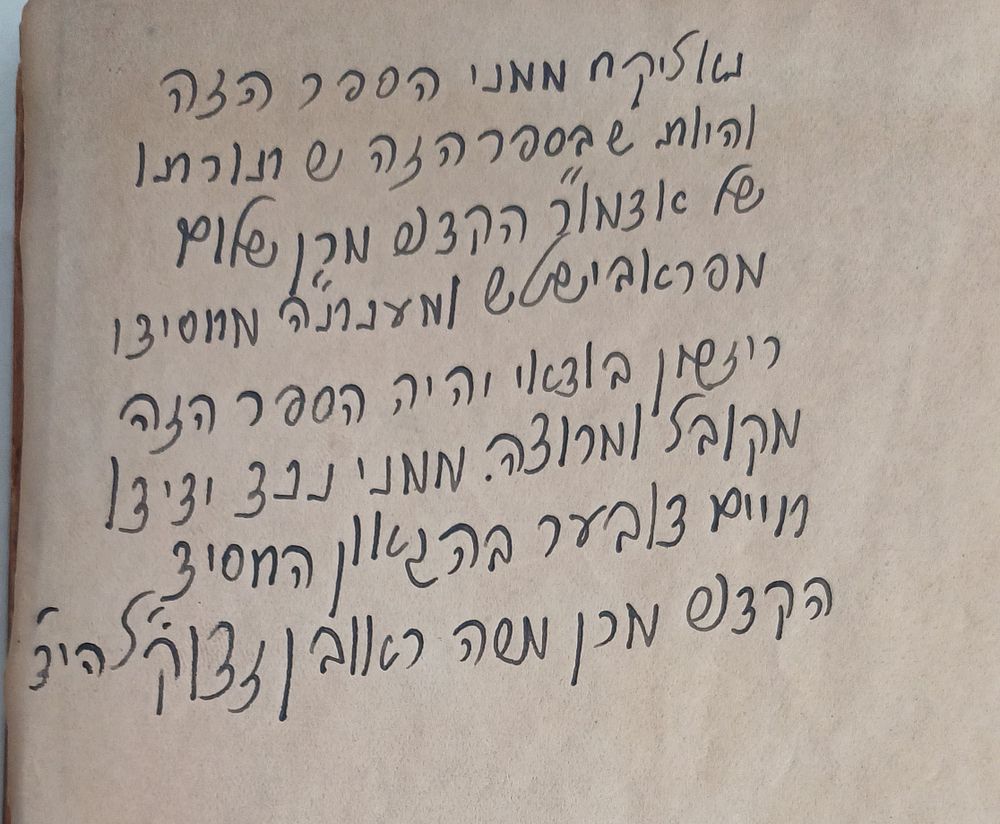 נא ליקח ממני הספר הזה
והיות שבספר הזה יש תורתו
של אדמו"ר הקדוש מרן שלום
מפראבישטש ומע"כ תרו"ה מחסידו
ריזשין בודאי יהיה הספר הזה
מקובל ומרוצה. ממני נכד ידידו
חיים דובער בהגאון החסיד
הקדוש מרן משה ראובן זצוק"ל הי"ד